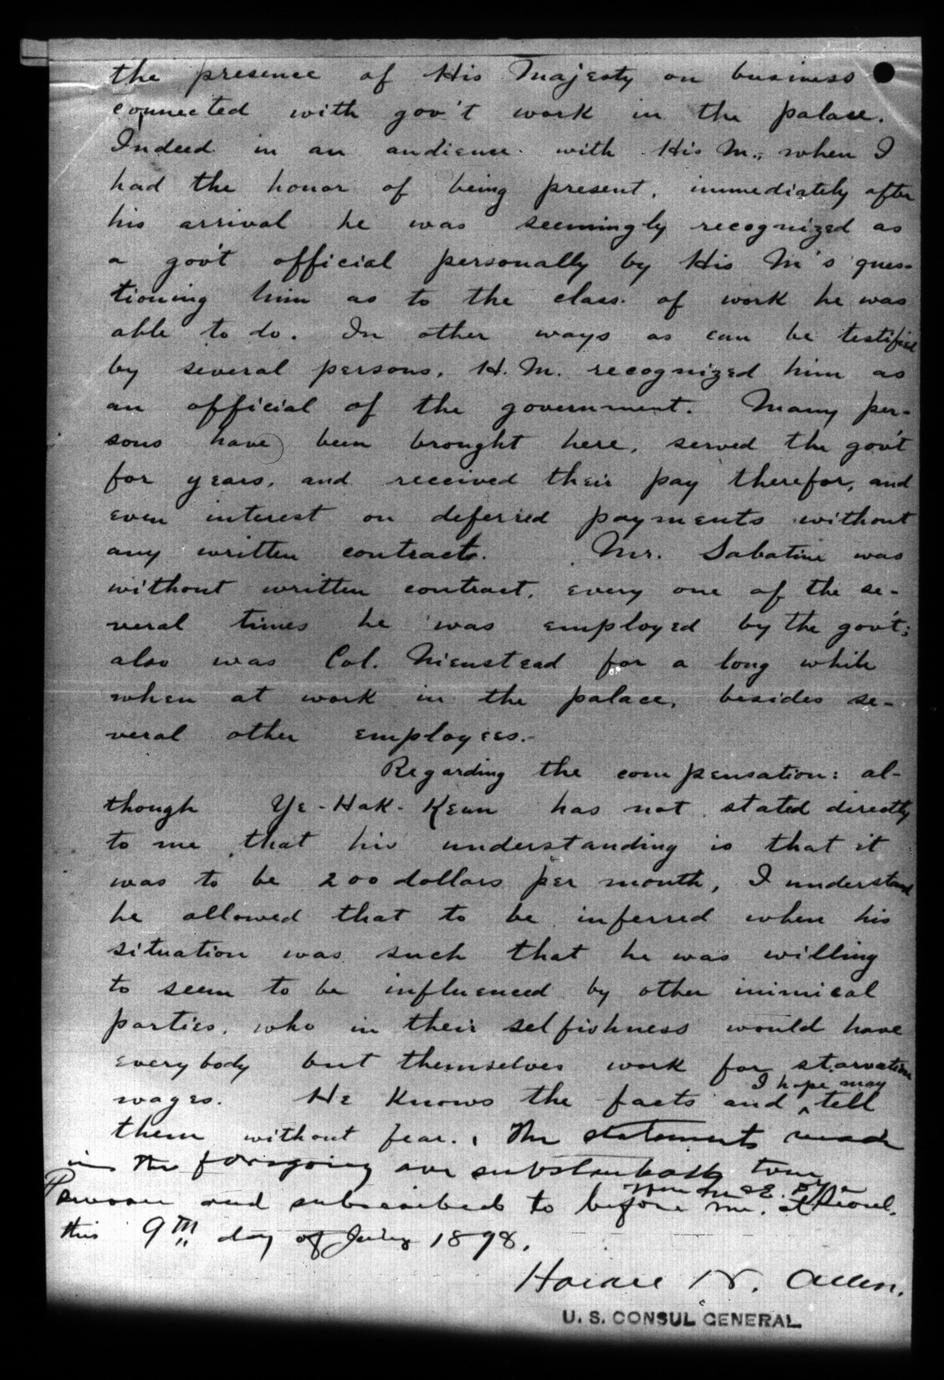 the presence of His Majesty on business
connected with gov't work in the palace.
Indeed in an audience with His M., when I
had the honor of being present, immediately after
his arrival he was seemingly recognized as
a gov't official personally by His M's ques-
tioning him as to the class of work he was
able to do. In other ways as can be testified
by several persons, H. M. recognized him as
an official of the government. Many per-
sons have been brought here, served the gov't
for years, and received their pay therefor, and
even interest on deferred payments without
any written contract. Mr. Sabatine was
without written contract, every one of the se-
veral times he was employed by the gov't;
also was Col. Nienstead for a long while
when at work in the palace, besides se-
veral other employees.-
Regarding the compensation: al-
though Ye-Hak-Keun has not stated directly
to me that his understanding is that it
was to be 200 dollars per month, I understand
he allowed that to be inferred when his
situation was such that he was willing
to seem to be influenced by other inimical
parties, who in their selfishness would have
everybody but themselves work for starvation
I hope may
wages. He knows the facts and tell
them without fear. The statements made
in the foregoing are substantially true
Wm McE.
Sworn and subscribed to before me, at Seoul,
this 9TH day of July 1898.
Horace N. Allen.
U. S. CONSUL GENERAL